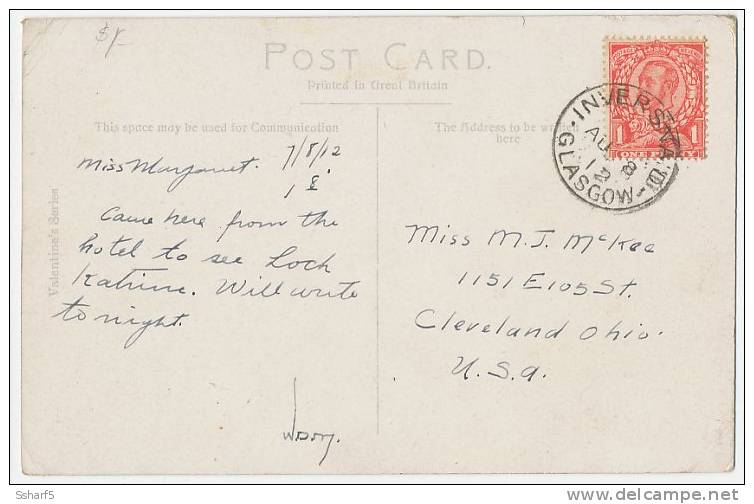 $1/-
POST CARD.
Printed in Great Britain
This space may be used for Communication
The Address to be written
here
Valentine's Series
7/8/12
Miss Margaret.
Came here from the
hotel to see Loch
Katrine. Will write
to night.
Miss M. J. McKee
1151 E 105 St.
Cleveland Ohio.
U.S.a.
INVERSNAID
AU 8
12
GLASGOW
ONE PENNY
1 1
Ssharf5
www.delcampe.net